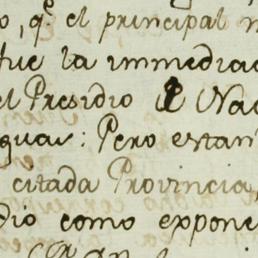 o, q.e el principal m
fue la immediac
el Presidio d Nac
guas: Pero estan
citada Provincia,
dio como expone